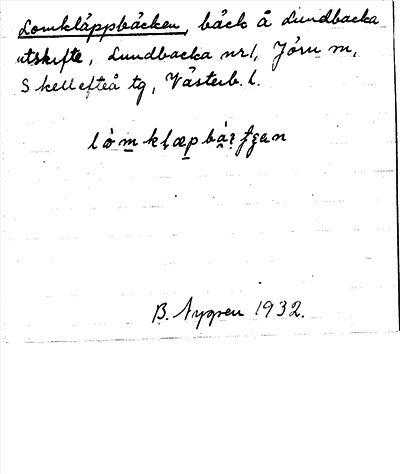 Lomkläppbäcken, bäck å Lundbacka
utskifte, Lundbacka nr 1, Jörn sn,
Skellefteå tg, Västerb. l.
B. Nygren 1932.